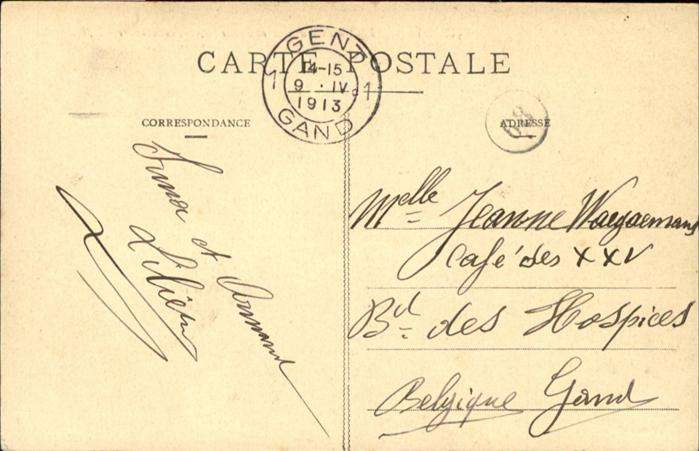 CARTE POSTALE
GENT
14-15
9 · IV
1913
GAND
1 1
CORRESPONDANCE
ADRESSE
et Armand
Melle Jeanne Waegaemans
Café des XXV
Bd des Hospices
Belgique Gand